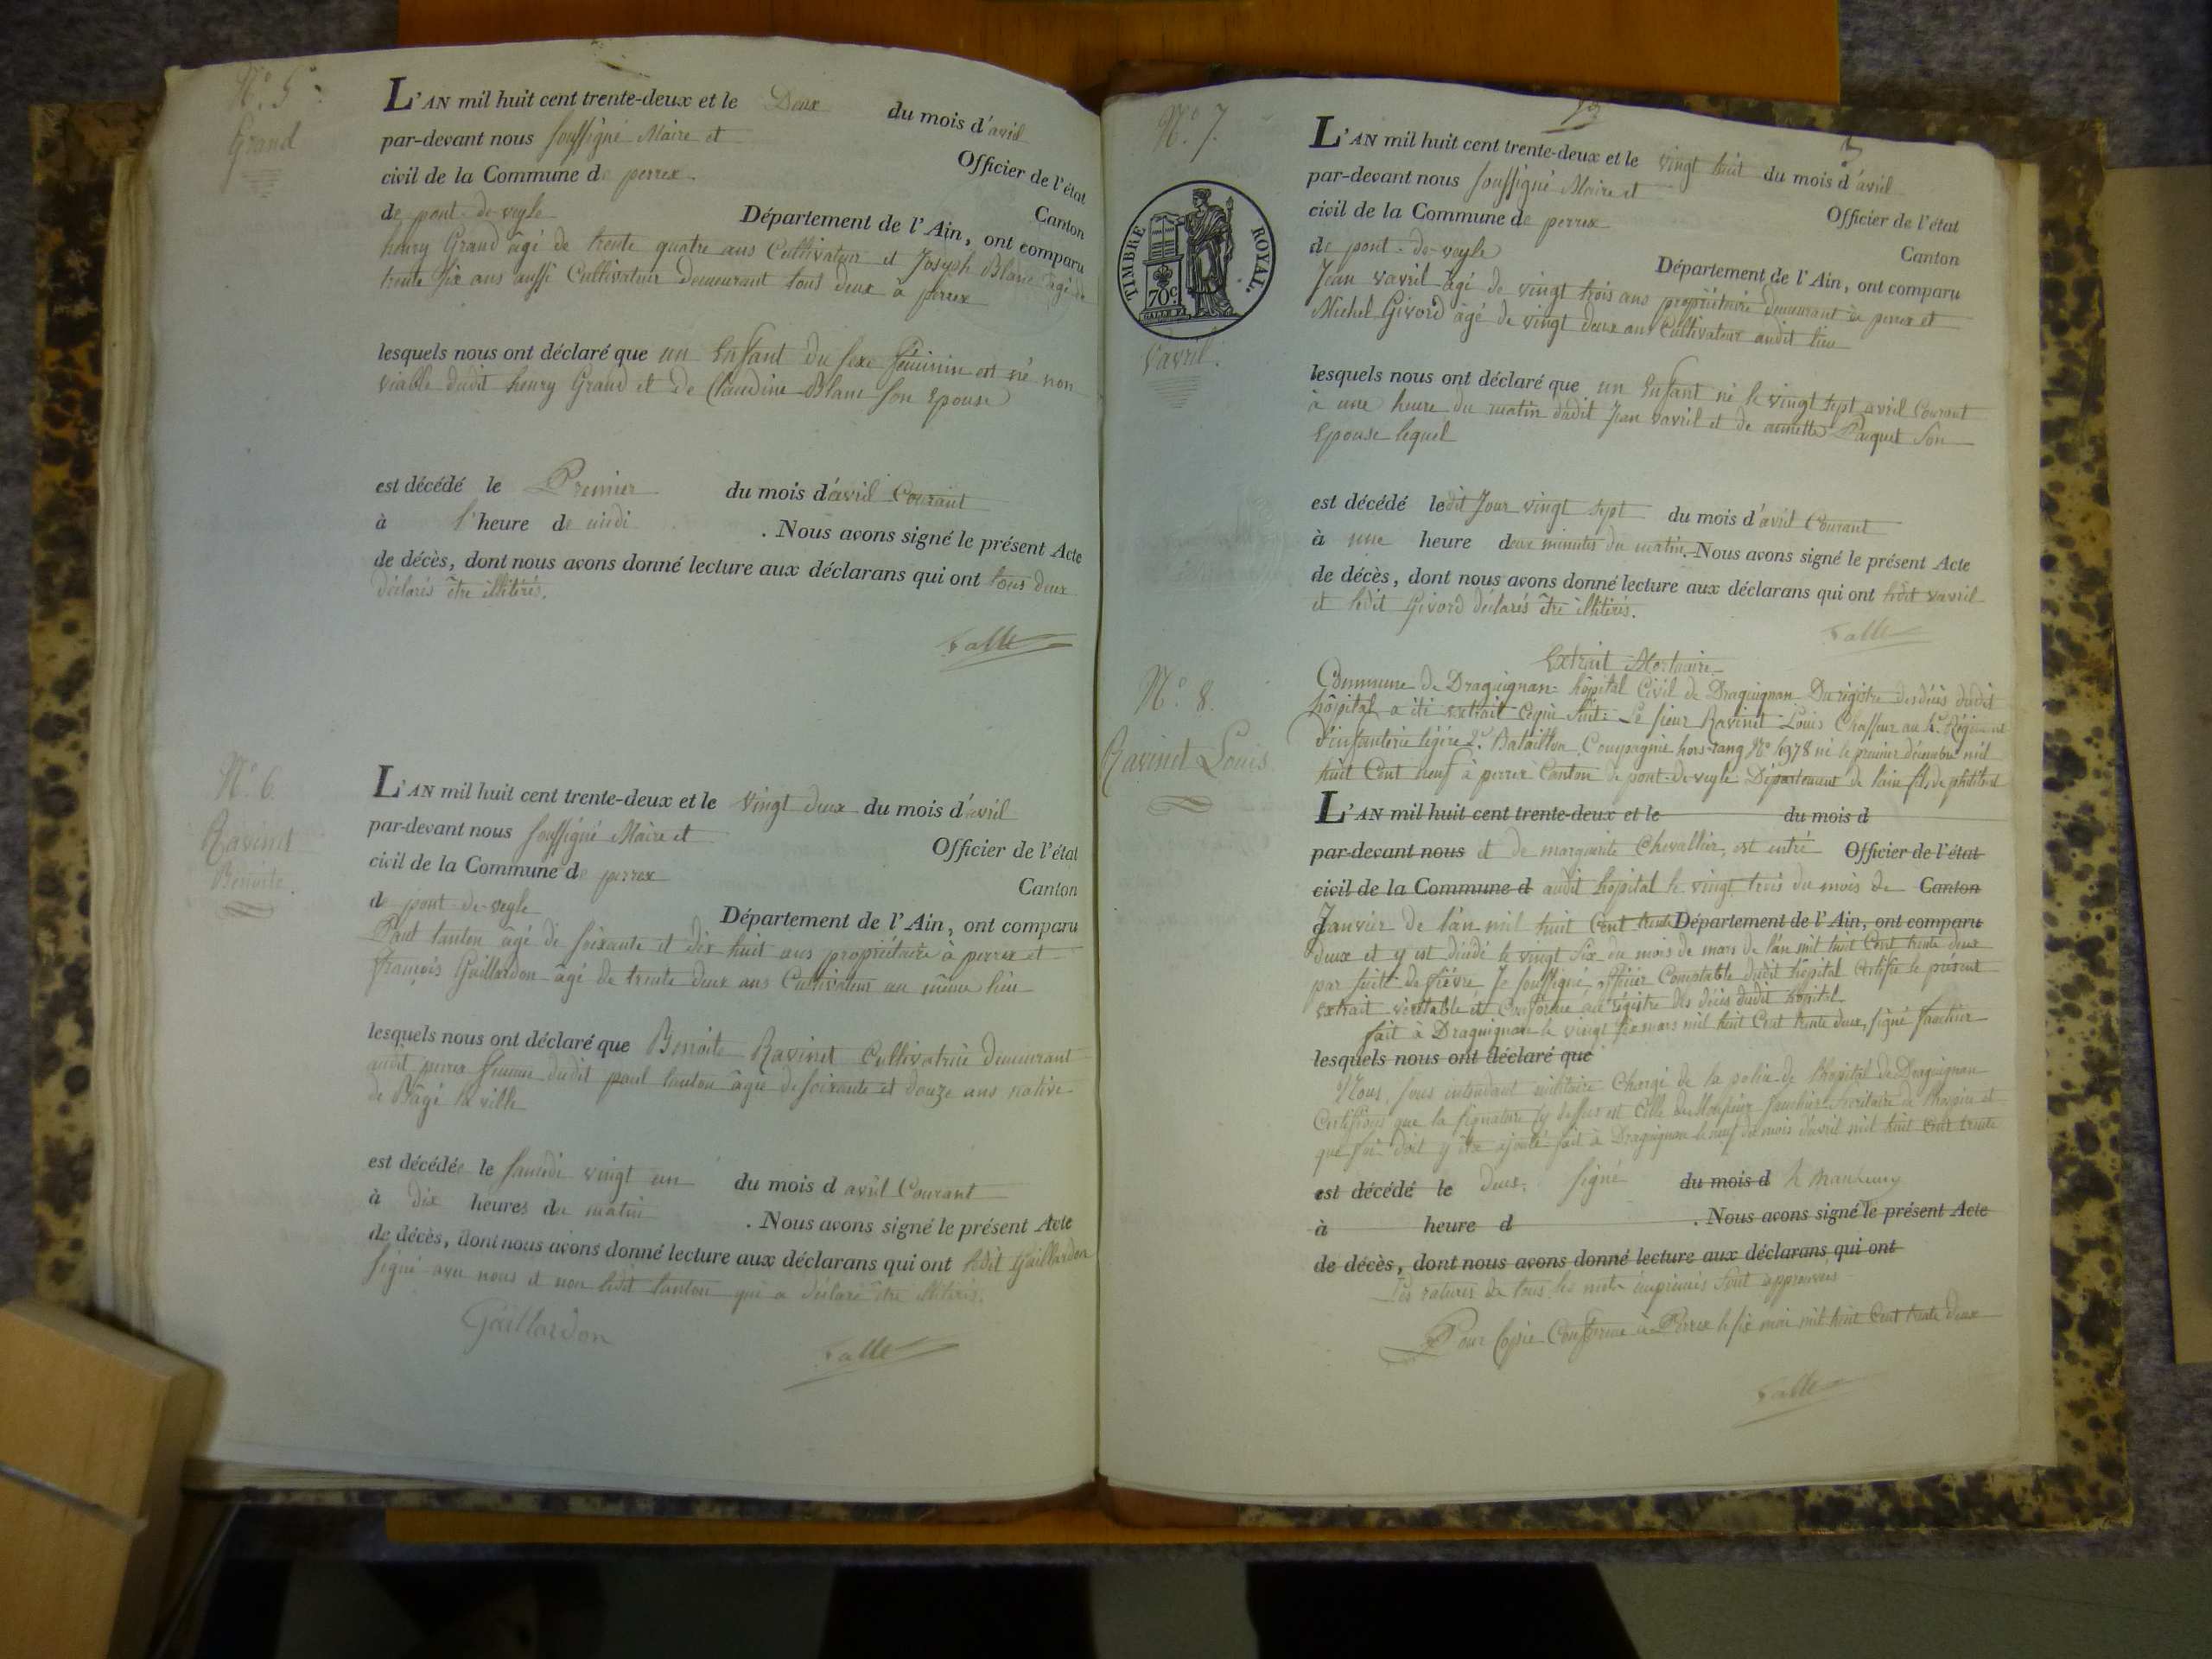 N.° 5.
Grand
L'AN mil huit cent trente-deux et le Deux du mois d'avril
par-devant nous soussigné Maire et Officier de l'état
civil de la Commune de perrex Canton
de pont-de-veyle Département de l'Ain, ont comparu
henry Grand âgé de trente quatre ans Cultivateur et Joseph Blanc âgé de
trente six ans aussi Cultivateur Demeurant tous deux à perrex
lesquels nous ont déclaré que un Enfant du sexe féminin est né non
viable dudit henry Grand et de Claudine Blanc son Epouse
est décédé le Premier du mois d'avril Courant
à l'heure de midi . Nous avons signé le présent Acte
de décès, dont nous avons donné lecture aux déclarans qui ont tous deux
déclarés être illitérés.
Falle
N.° 6.
Ravinet
Benoite.
L'AN mil huit cent trente-deux et le vingt deux du mois d'avril
par-devant nous soussigné Maire et Officier de l'état
civil de la Commune de perrex Canton
de pont-de-veyle Département de l'Ain, ont comparu
Paul tanton âgé de soixante et dix huit ans propriétaire à perrex et
françois Gaillardon âgé de trente deux ans Cultivateur au même lieu
lesquels nous ont déclaré que Benoite Ravinet Cultivatrice demeurant
audit perrex femme dudit paul tanton âgée de soixante et douze ans native
de Bâgé la ville
est décédée le samedi vingt un du mois d avril Courant
à dix heures du matin . Nous avons signé le présent Acte
de décès, dont nous avons donné lecture aux déclarans qui ont ledit Gaillardon
signé avec nous et non ledit tanton qui a déclaré être illitéré.
Gaillardon
Falle
N.° 7.
TIMBRE ROYAL.
70c
vavril.
L'AN mil huit cent trente-deux et le vingt huit du mois d'avril
par-devant nous soussigné Maire et Officier de l'état
civil de la Commune de perrex Canton
de pont-de-veyle Département de l'Ain, ont comparu
Jean vavril âgé de vingt trois ans propriétaire demeurant à perrex et
Michel Givord âgé de vingt deux ans Cultivateur audit lieu
lesquels nous ont déclaré que un Enfant né le vingt sept avril Courant
à une heure du matin dudit Jean vavril et de annette Paquet son
Epouse lequel
est décédé ledit Jour vingt sept du mois d'avril Courant
à une heure deux minutes du matin. Nous avons signé le présent Acte
de décès, dont nous avons donné lecture aux déclarans qui ont ledit vavril
et ledit Givord déclarés être illitérés.
Falle
N.° 8.
Ravinet Louis
Extrait Mortuaire
Commune de Draguignan = hôpital Civil de Draguignan Du registre des décès dudit
hôpital a été extrait cequi suit: Le sieur Ravinet Louis Chasseur au 4.e Régiment
d'infanterie légère 2.e Bataillon Compagnie hors-rang N.° 4378 né le premier décembre mil
huit Cent neuf à perrex Canton de pont-de-veyle Département de l'ain fils de philibert
L'AN mil huit cent trente-deux et le du mois d
par-devant nous et de marguerite Chevallier, est entré Officier de l'état
civil de la Commune d audit hôpital le vingt trois du mois de Canton
Janvier de l'an mil huit Cent trente Département de l'Ain, ont comparu
deux et y est décédé le vingt six du mois de mars de l'an mil huit Cent trente deux
par suite de fièvre, Je soussigné officier Comptable dudit hôpital Certifie le présent
extrait véritable et Conforme au registre des décès dudit hôpital
fait à Draguignan le vingt six mars mil huit Cent trente deux, signé
lesquels nous ont déclaré que
Nous, sous intendant militaire Chargé de la police de l'hôpital de Draguignan
Certifions que la signature cy dessus est Celle de Monsieur Secrétaire de l'hospice et
que foi doit y être ajouté fait à Draguignan le neuf du mois d'avril mil huit Cent trente
est décédé le deux. signé du mois d
à heure d . Nous avons signé le présent Acte
de décès, dont nous avons donné lecture aux déclarans qui ont
Les ratures de tous les mots imprimés sont approuvées
Pour Copie Conforme à Perrex le six mai mil huit Cent trente deux
Falle